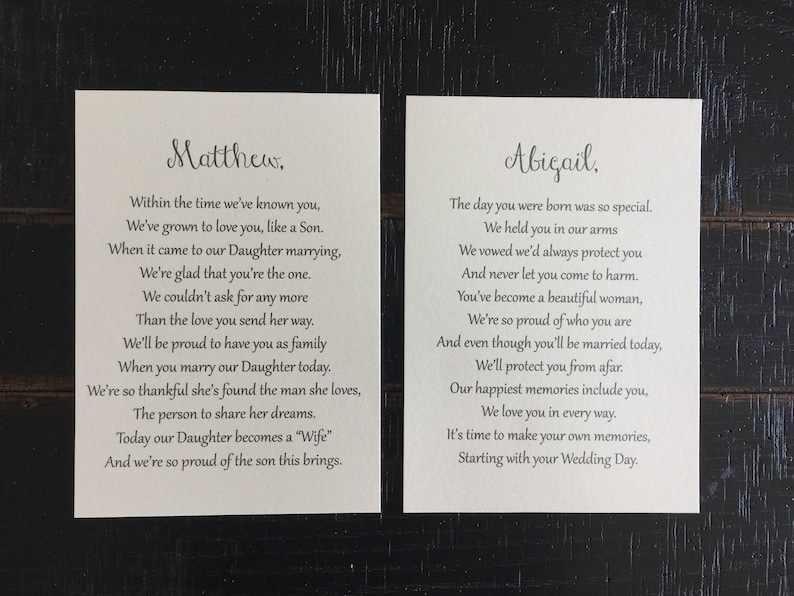 Matthew,
Within the time we've known you,
We've grown to love you, like a Son.
When it came to our Daughter marrying,
We're glad that you're the one.
We couldn't ask for any more
Than the love you send her way.
We'll be proud to have you as family
When you marry our Daughter today.
We're so thankful she's found the man she loves,
The person to share her dreams.
Today our Daughter becomes a “Wife”
And we're so proud of the son this brings.
Abigail,
The day you were born was so special.
We held you in our arms
We vowed we'd always protect you
And never let you come to harm.
You've become a beautiful woman,
We're so proud of who you are
And even though you'll be married today,
We'll protect you from afar.
Our happiest memories include you,
We love you in every way.
It's time to make your own memories,
Starting with your Wedding Day.